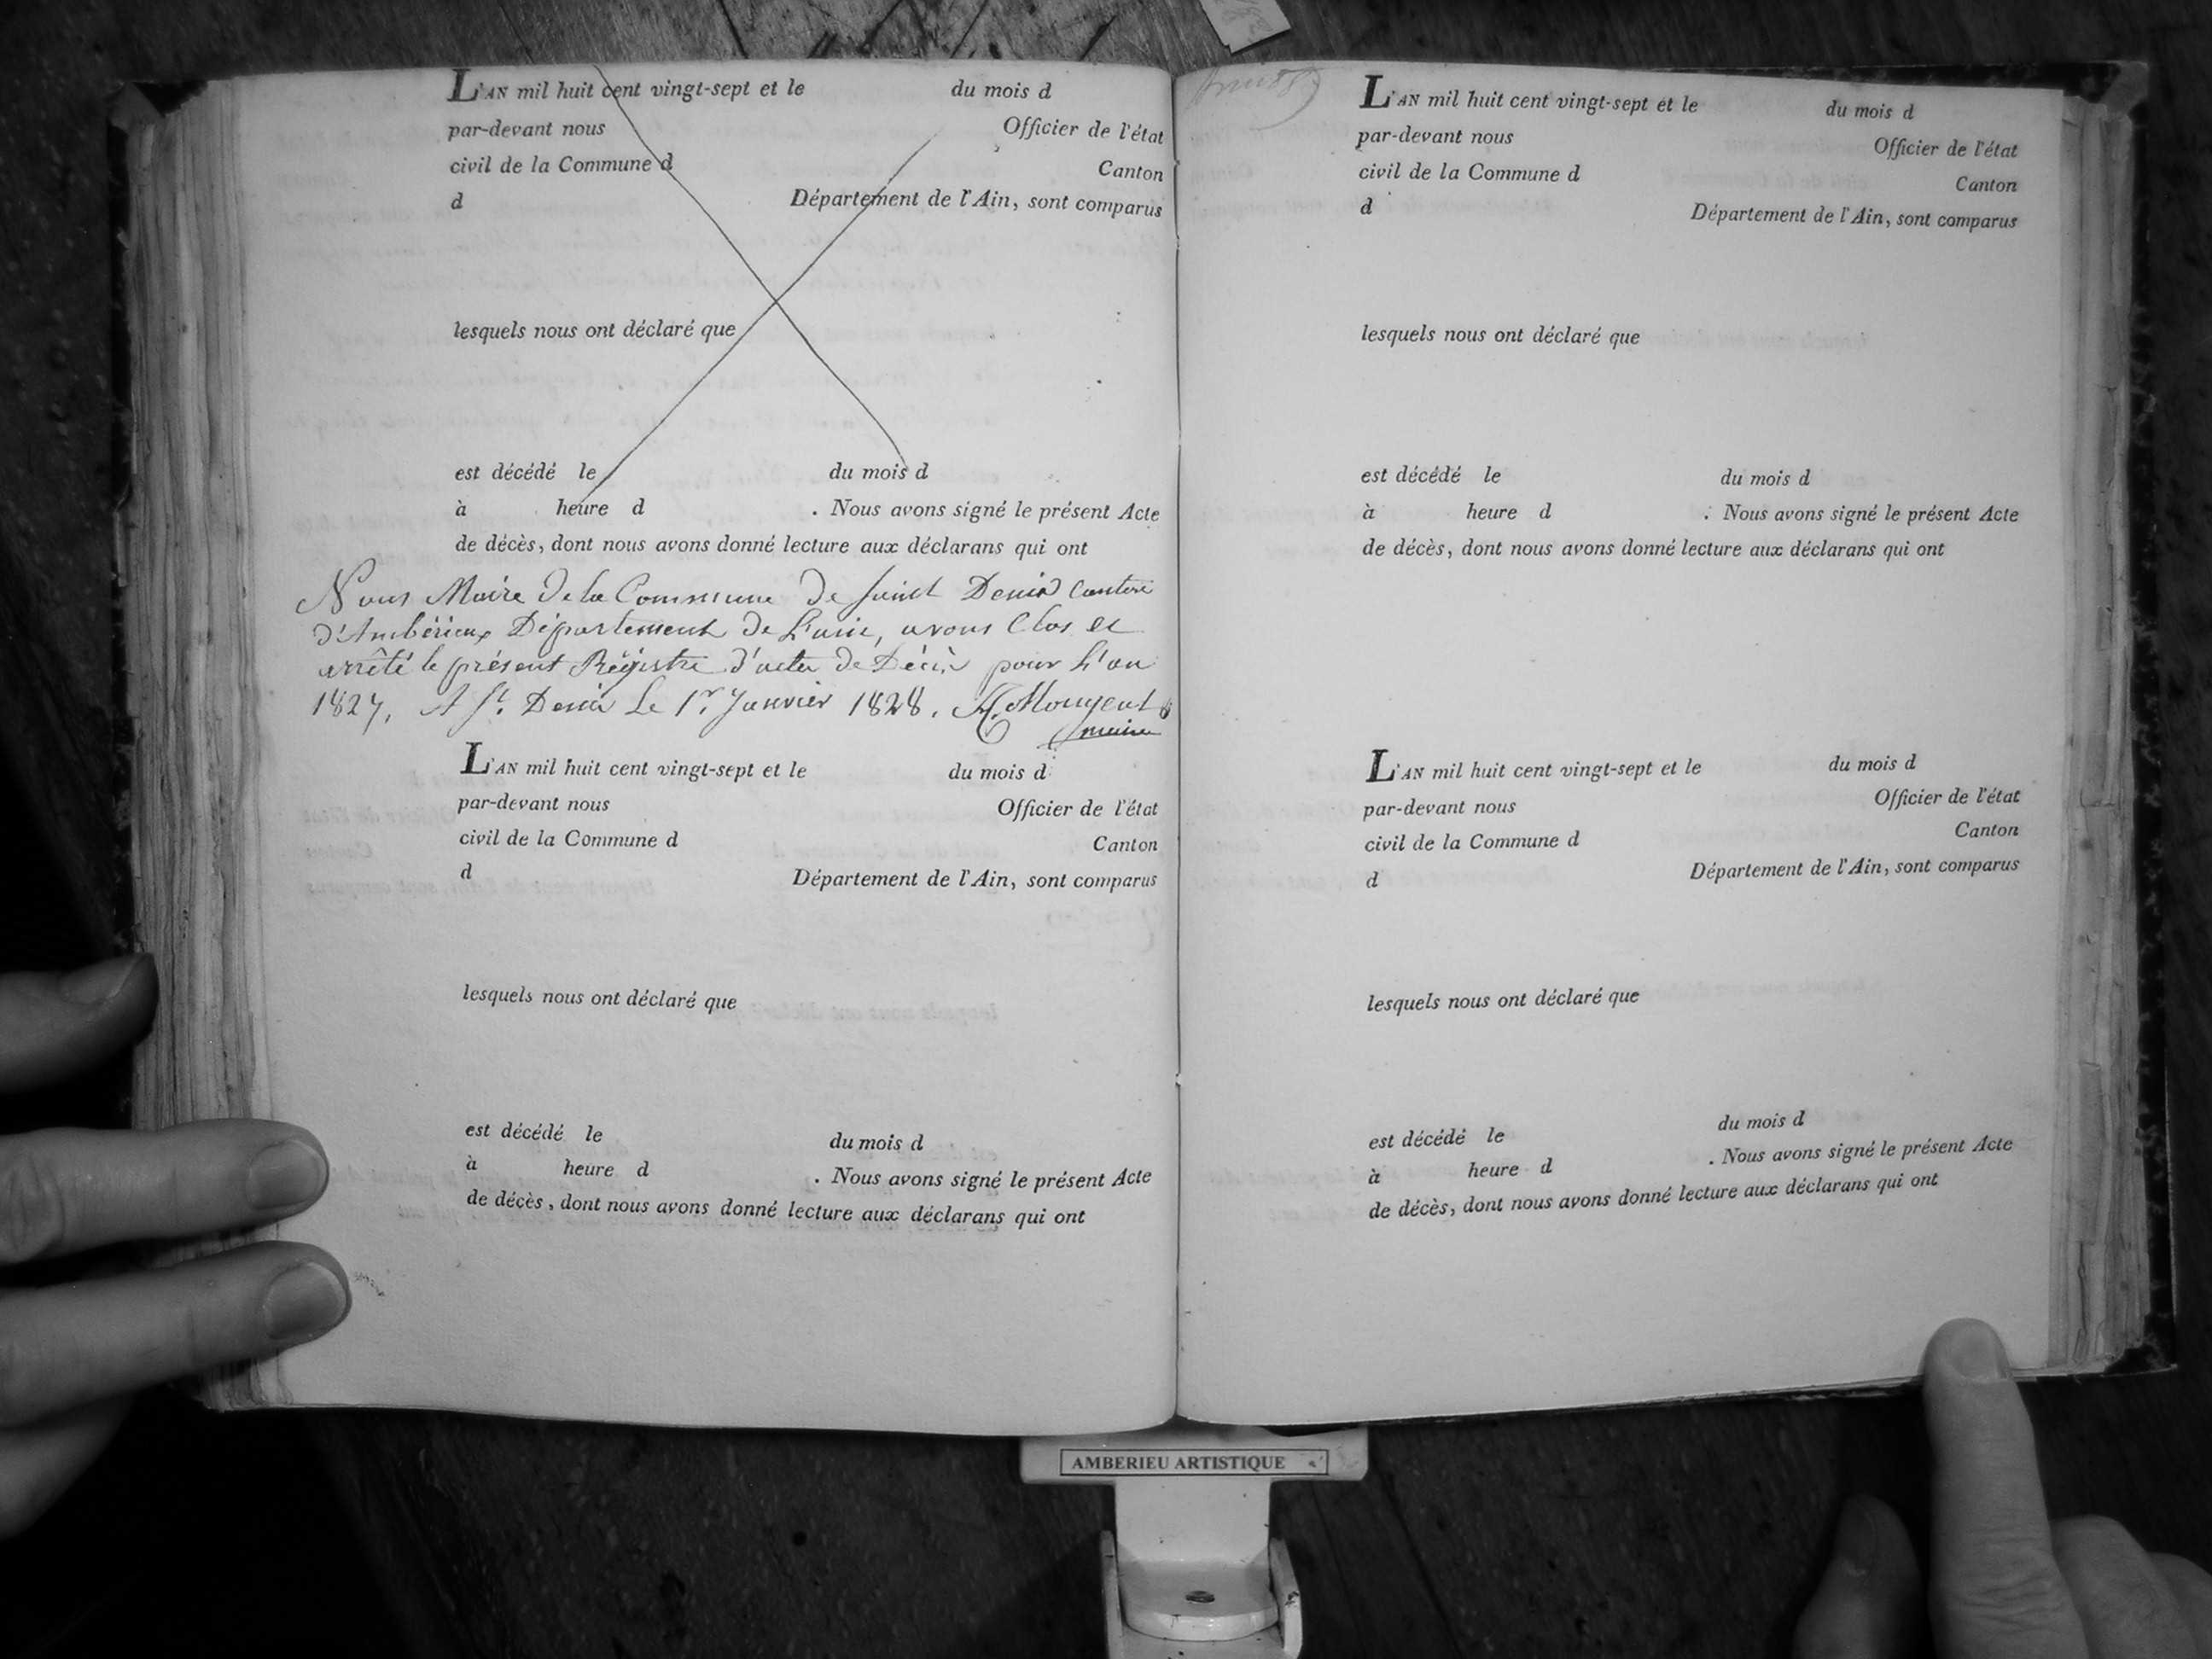 L'AN mil huit cent vingt-sept et le du mois d
par-devant nous Officier de l'état
civil de la Commune d Canton
d Département de l'Ain, sont comparus
lesquels nous ont déclaré que
est décédé le du mois d
à heure d . Nous avons signé le présent Acte
de décès, dont nous avons donné lecture aux déclarans qui ont
Nous Maire de la Commune de Saint Denis Canton
d'Ambérieux Département de L'ain, avons Clos et
arrêté le présent Régistre d'actes de Décès pour L'an
1827, A St. Denis Le 1er Janvier 1828.
maire
L'AN mil huit cent vingt-sept et le du mois d
par-devant nous Officier de l'état
civil de la Commune d Canton
d Département de l'Ain, sont comparus
lesquels nous ont déclaré que
est décédé le du mois d
à heure d . Nous avons signé le présent Acte
de décès, dont nous avons donné lecture aux déclarans qui ont
L'AN mil huit cent vingt-sept et le du mois d
par-devant nous Officier de l'état
civil de la Commune d Canton
d Département de l'Ain, sont comparus
lesquels nous ont déclaré que
est décédé le du mois d
à heure d . Nous avons signé le présent Acte
de décès, dont nous avons donné lecture aux déclarans qui ont
L'AN mil huit cent vingt-sept et le du mois d
par-devant nous Officier de l'état
civil de la Commune d Canton
d Département de l'Ain, sont comparus
lesquels nous ont déclaré que
est décédé le du mois d
à heure d . Nous avons signé le présent Acte
de décès, dont nous avons donné lecture aux déclarans qui ont
AMBERIEU ARTISTIQUE